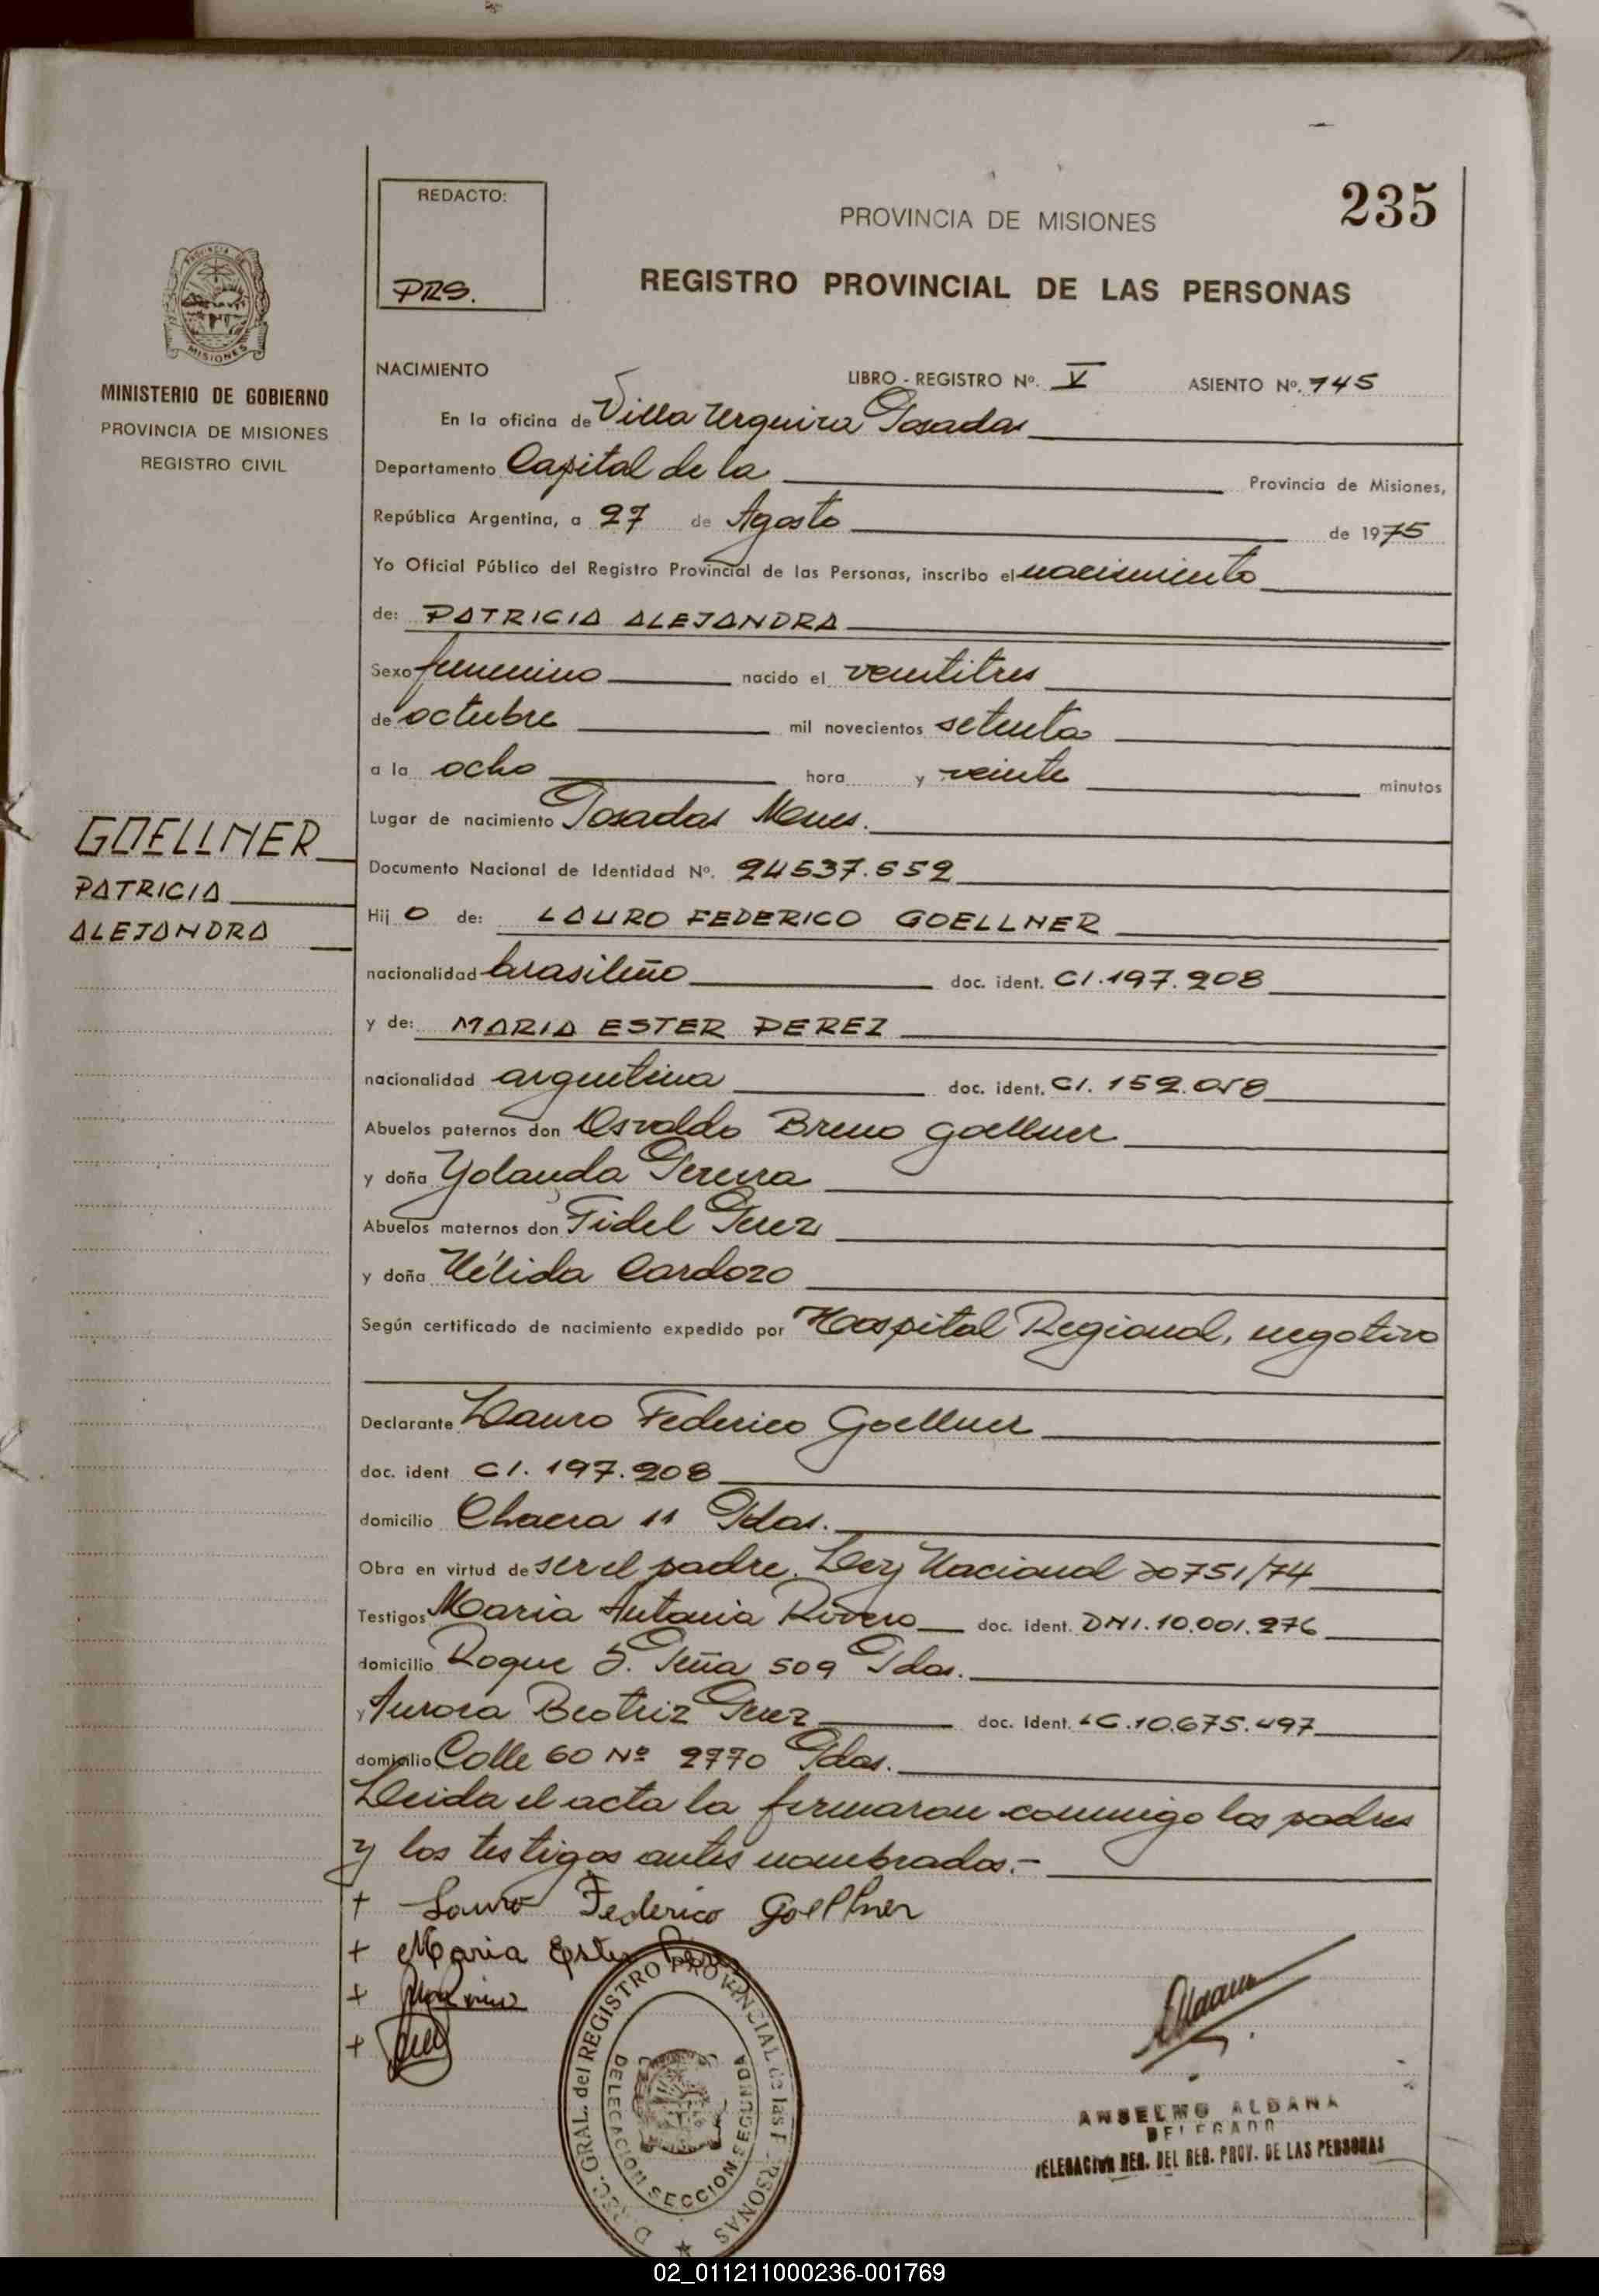 235
REDACTO:
PRS.
PROVINCIA DE MISIONES
REGISTRO PROVINCIAL DE LAS PERSONAS
PROVINCIA DE
MISIONES
MINISTERIO DE GOBIERNO
PROVINCIA DE MISIONES
REGISTRO CIVIL
NACIMIENTO
LIBRO - REGISTRO Nº. V ASIENTO Nº. 745
En la oficina de Villa Urquiza Posadas
Departamento Capital de la Provincia de Misiones,
República Argentina, a 27 de Agosto de 1975
Yo Oficial Público del Registro Provincial de las Personas, inscribo el nacimiento
de: PATRICIA ALEJANDRA
Sexo femenino nacido el veintitres
de octubre mil novecientos setenta
a la ocho hora y veinte minutos
Lugar de nacimiento Posadas Mnes.
GOELLNER
PATRICIA
ALEJANDRA
Documento Nacional de Identidad Nº. 24537.552
Hij o de: LAURO FEDERICO GOELLNER
nacionalidad brasileño doc. ident. CI.197.208
y de: MARIA ESTER PEREZ
nacionalidad argentina doc. ident. CI. 152.058
Abuelos paternos don Osvaldo Breno Goellner
y doña Yolanda Pereira
Abuelos maternos don Fidel Perez
y doña Nélida Cardozo
Según certificado de nacimiento expedido por Hospital Regional, negativo
Declarante Lauro Federico Goellner
doc. ident CI. 197.208
domicilio Chacra 11 Pdas.
Obra en virtud de ser el padre. Ley Nacional 20751/74
Testigos Maria Antonia Rivero doc. ident. DNI.10.001.276
domicilio Roque S. Peña 509 Pdas.
y Aurora Beatriz Perez doc. Ident. LC.10.675.497
domicilio Calle 60 Nº 2770 Pdas.
Leida el acta la firmaron conmigo los padres
y los testigos antes nombrados.-
+ Lauro Federico Goellner
+ Maria Ester Perez
+
+
DIREC. GRAL. del REGISTRO PROVINCIAL de las PERSONAS
DELEGACION SECCION SEGUNDA
ANSELMO ALDANA
DELEGADO
DELEGACION REG. DEL REG. PROV. DE LAS PERSONAS
02_011211000236-001769